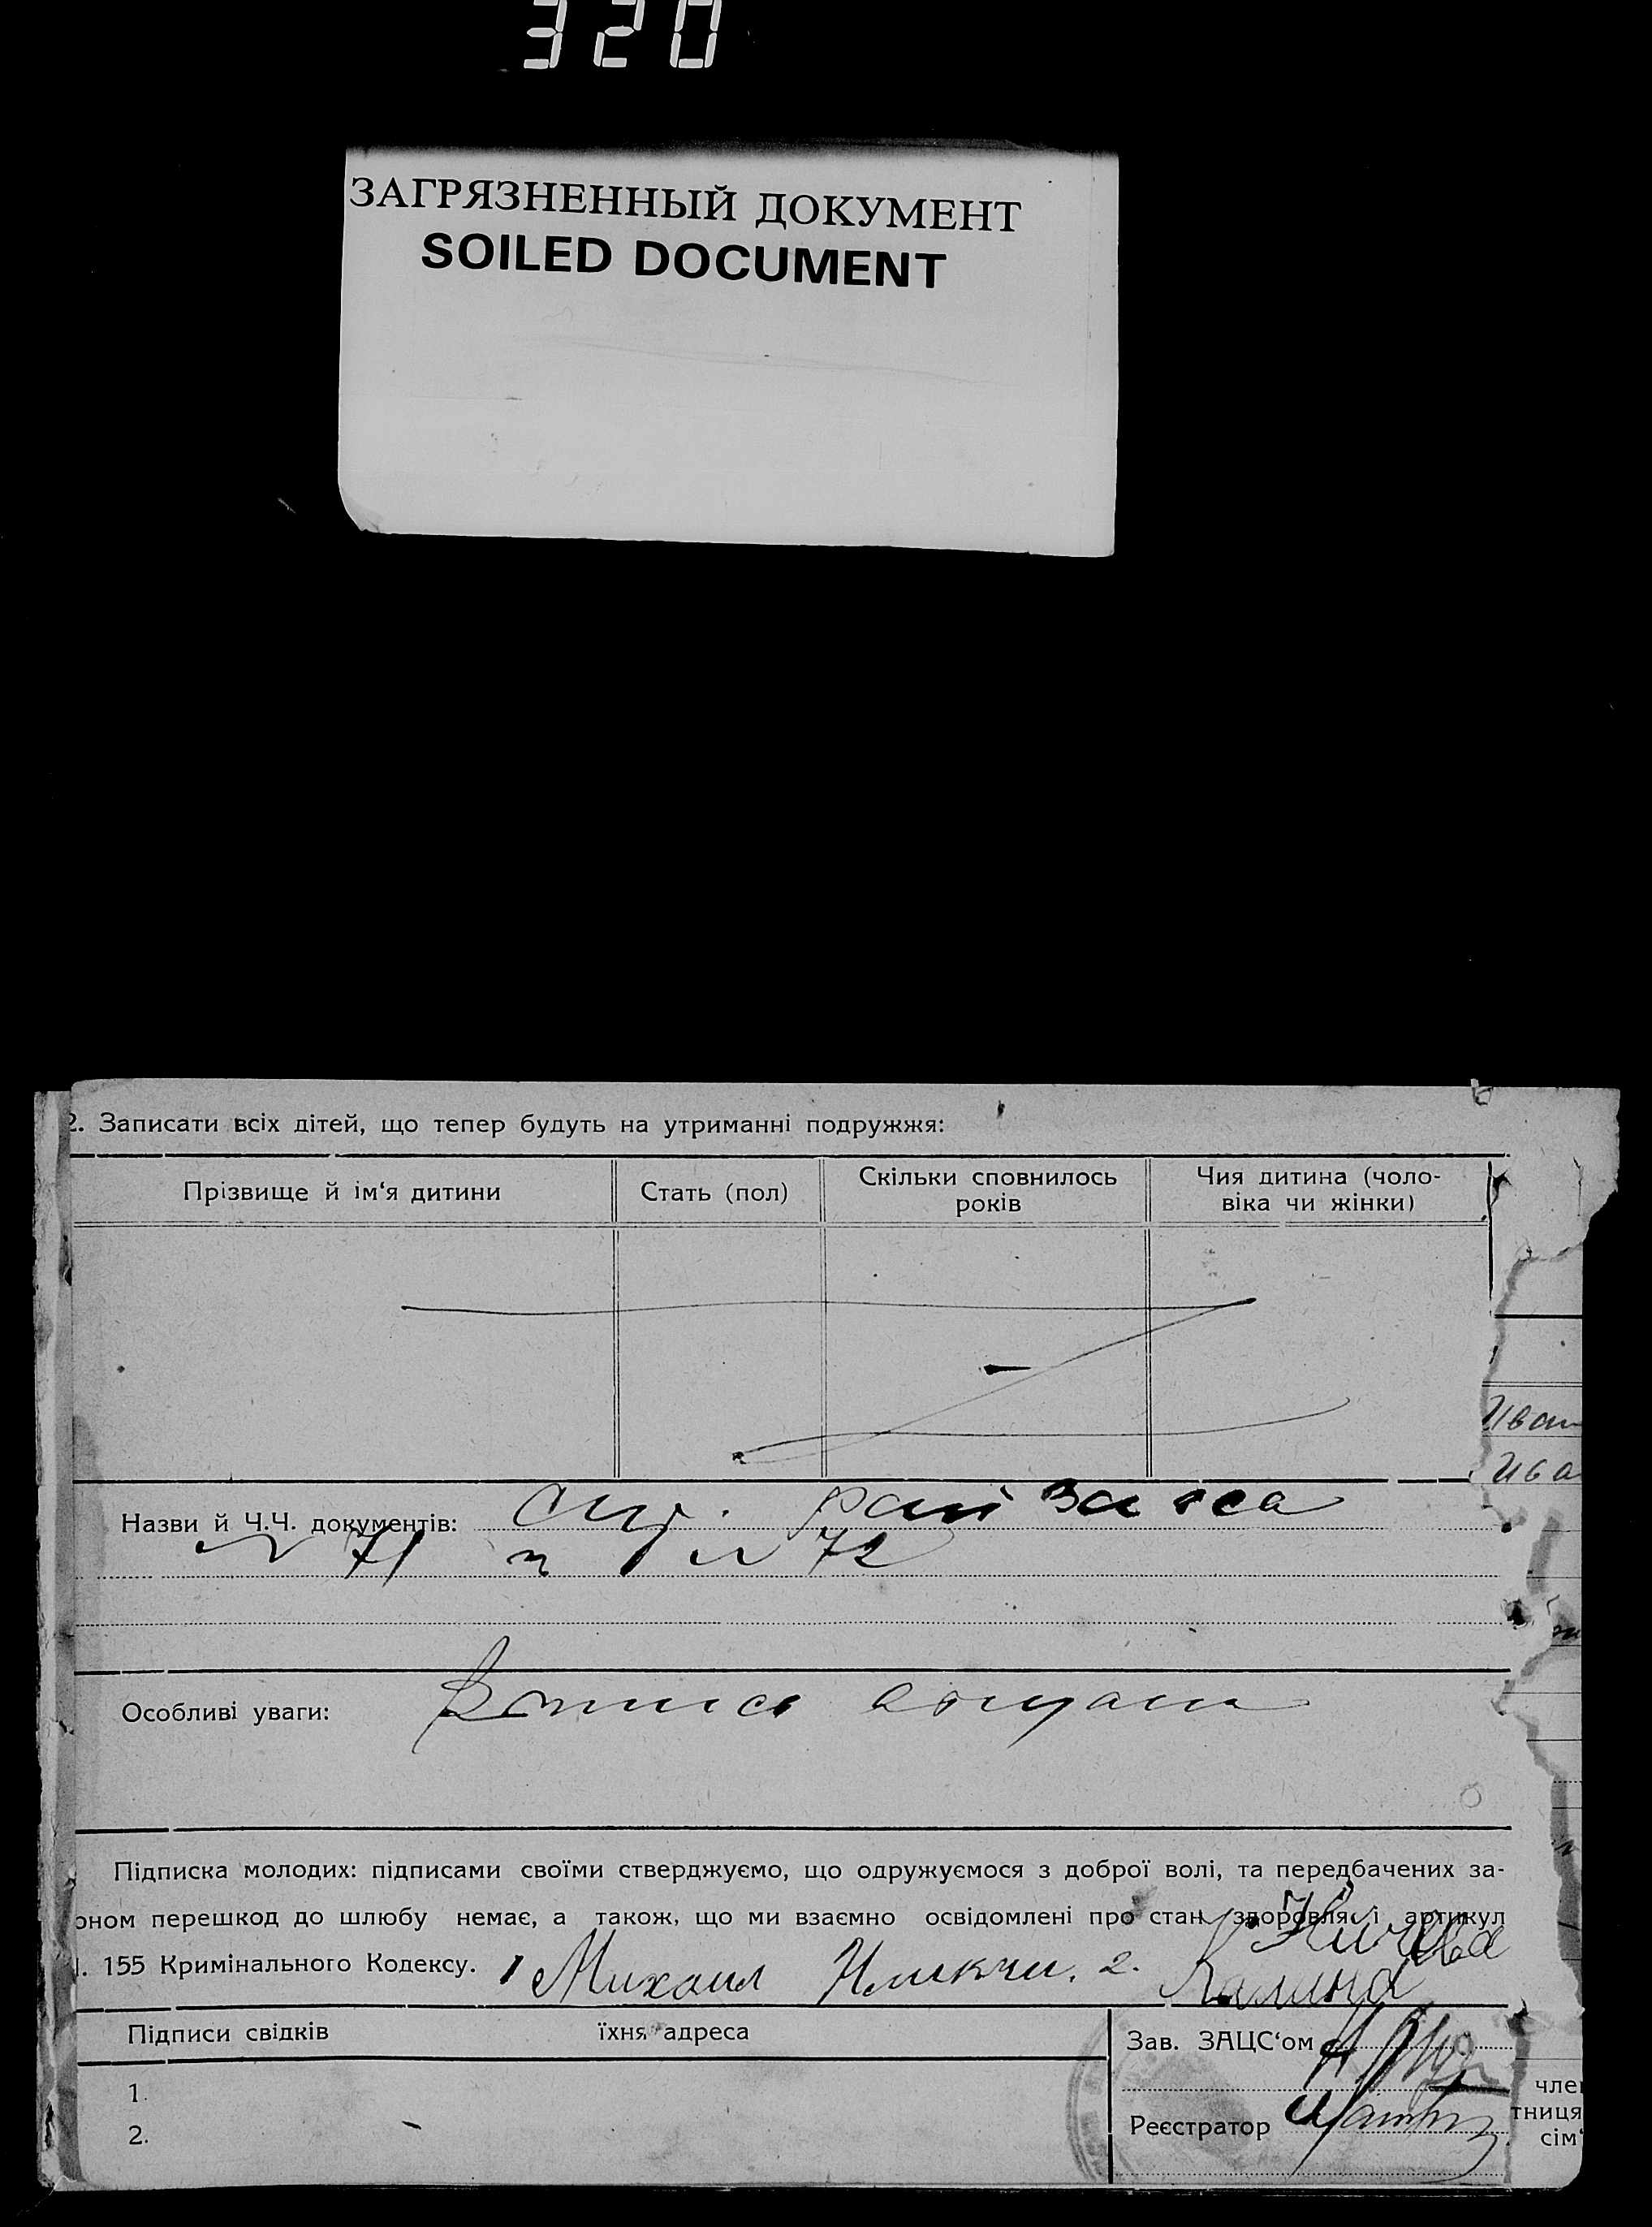 320
ЗАГРЯЗНЕННЫЙ ДОКУМЕНТ
SOILED DOCUMENT
2. Записати всіх дітей, що тепер будуть на утриманні подружжя:
Прізвище й ім‘я дитини Стать (пол) Скільки сповнилось років Чия дитина (чоло-віка чи жінки)
Иван
Ива
Назви й Ч.Ч. документів: рай загса
№ 71 и № 72
Особливі уваги:
Підписка молодих: підписами своїми стверджуємо, що одружуємося з доброї волі, та передбачених за-
оном перешкод до шлюбу немає, а також, що ми взаємно освідомлені про стан здоровля і артикул
. 155 Кримінального Кодексу. 1 Михаил 2. Калина
Підписи свідків їхня адреса
Зав. ЗАЦС‘ом
1.
Реєстратор
2.
член
тниця
сім‘